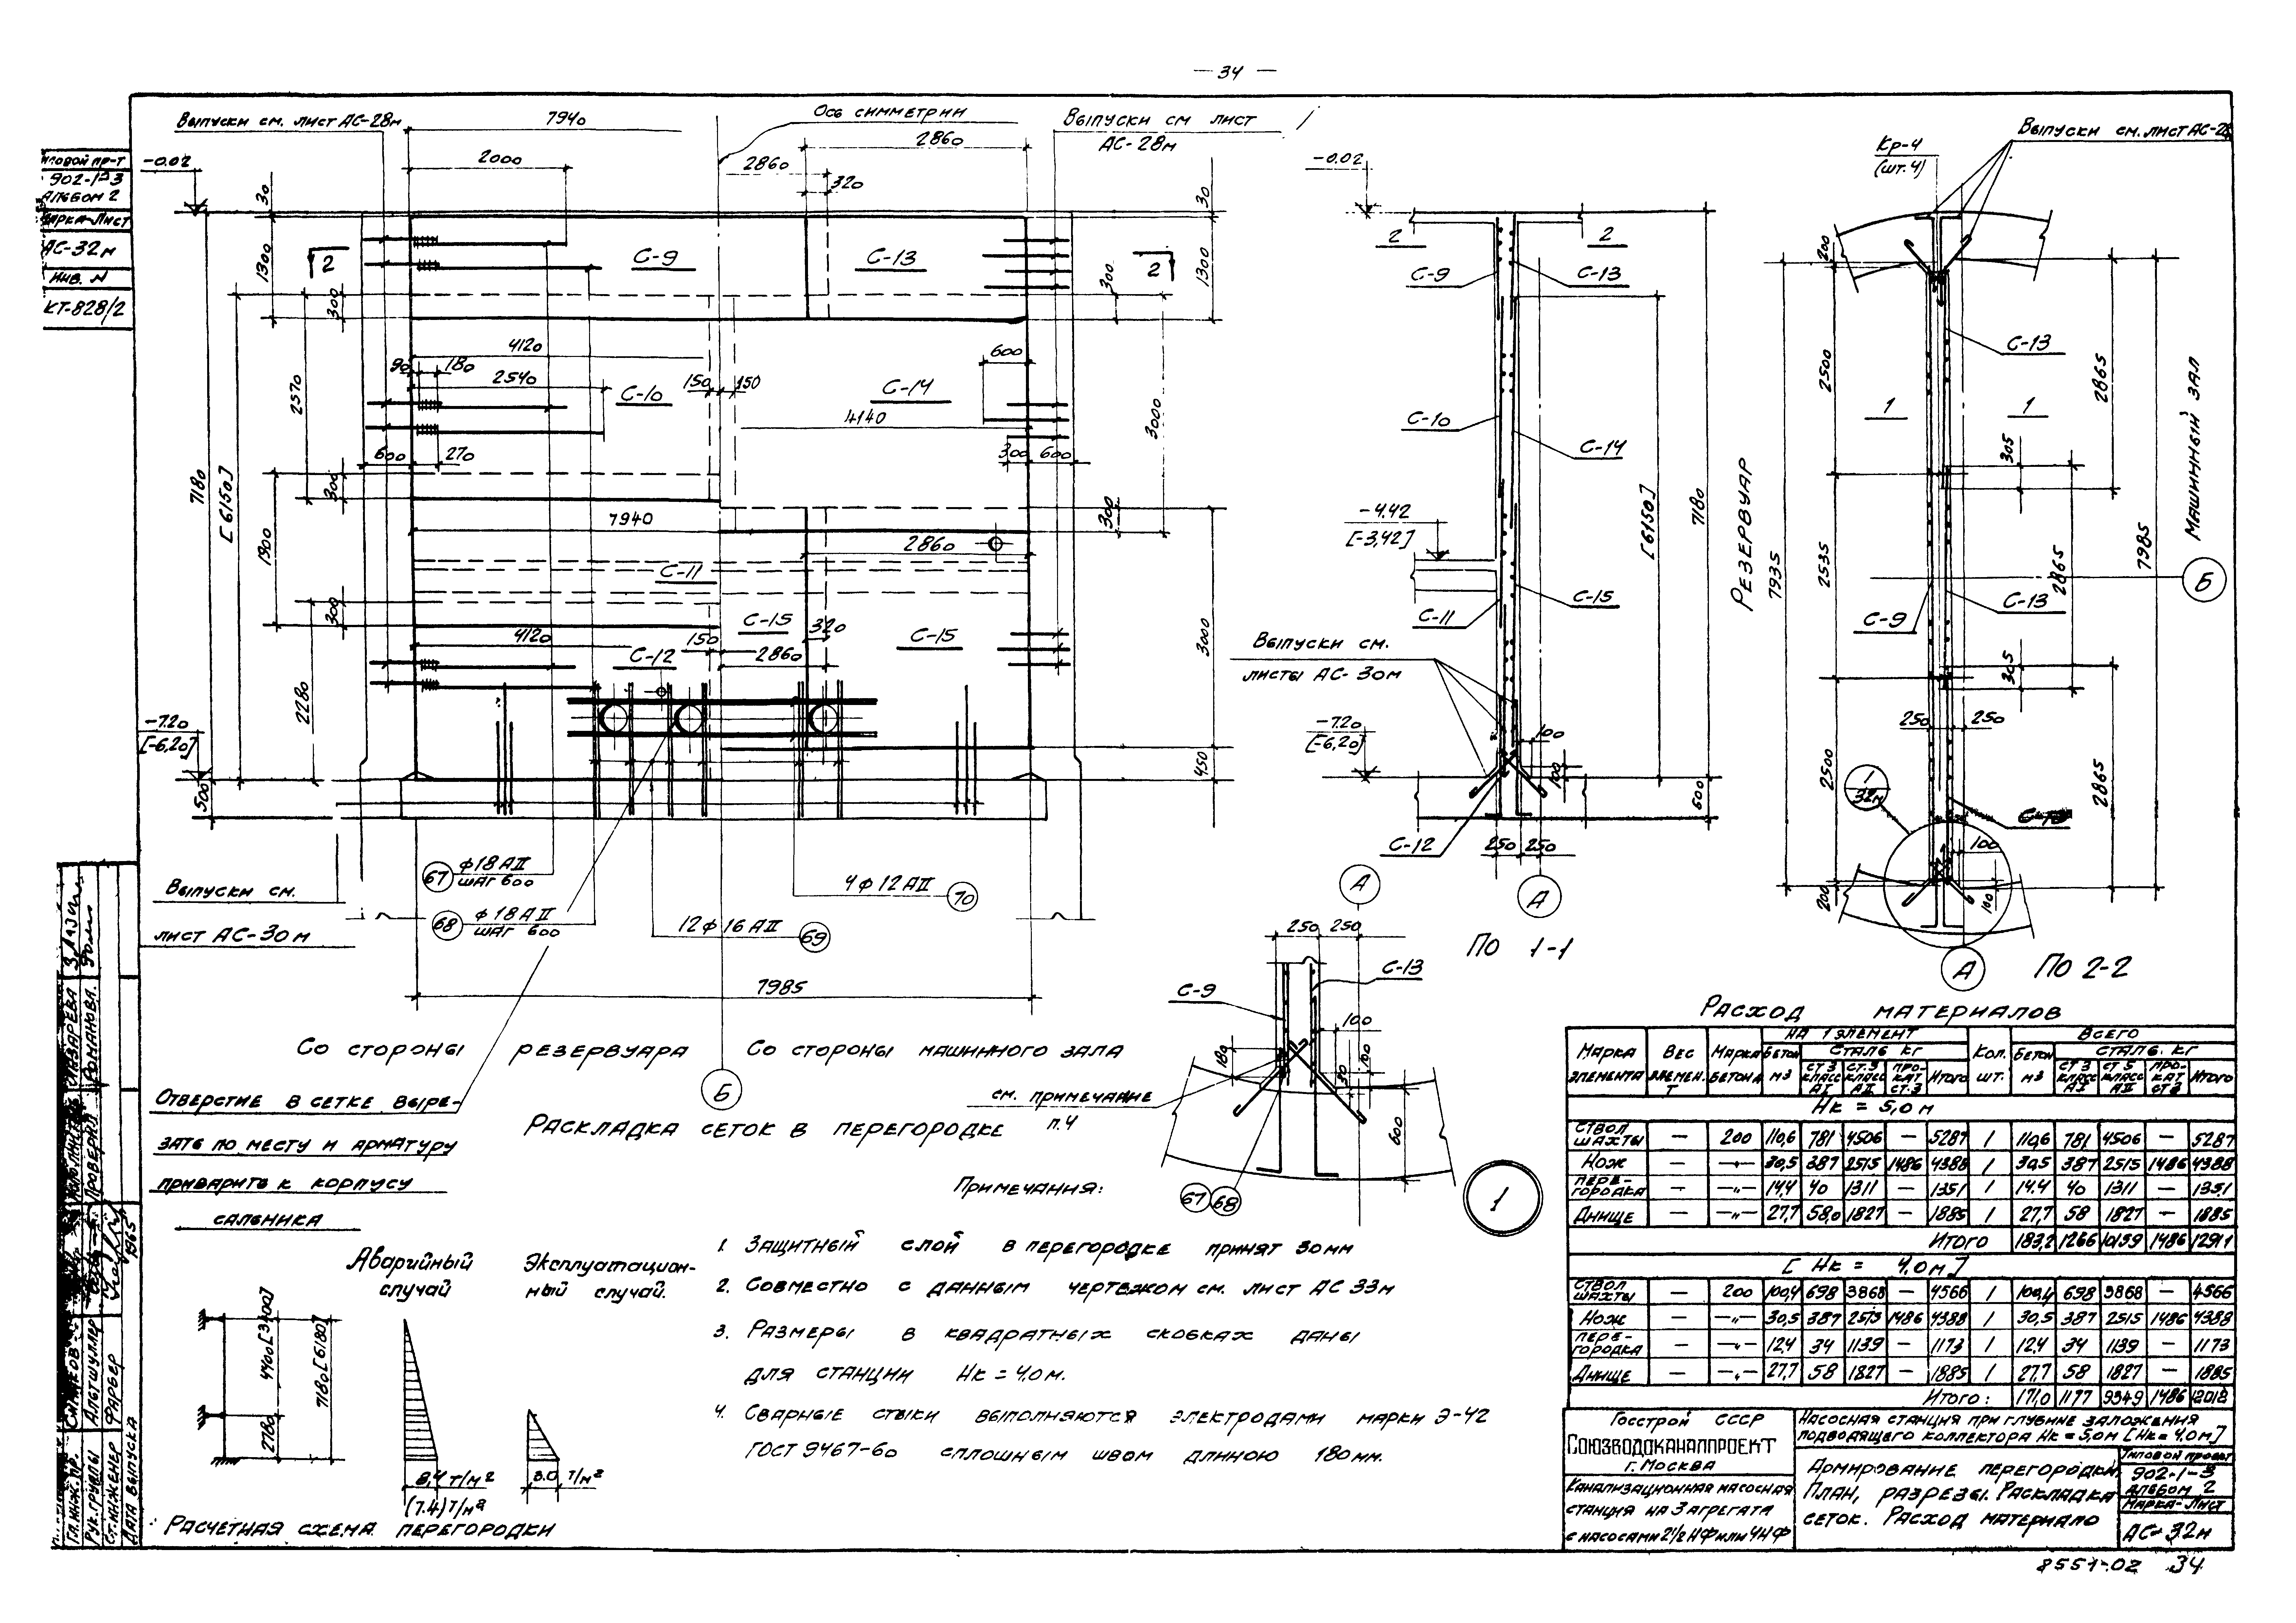 — 34 —
Выпуски см. лист АС-28м
7940
Ось симметрии
2860
Выпуски см лист
АС-28м
Выпуски см. лист АС-28
Кр-4
(шт. 4)
Типовой пр-т
902-1-3
Альбом 2
Марка-Лист
АС-32м
Инв. N
КТ-828/2
-0.02
2000
2860
320
30
1300
300
2
С-9
С-13
2
300
1300
30
4120
90
180
2540
150
150
С-10
С-14
4140
600
2570
600
270
300
600
3000
7180
[6150]
300
1900
7940
2860
300
С-11
С-15
320
С-15
300
4120
150
2860
С-12
2280
3000
-7.20
[-6,20]
500
450
67
ф18АII
шаг 600
68
ф18АII
шаг 600
4ф12АII
70
12ф16АII
69
Выпуски см.
лист АС-30м
7985
Со стороны резервуара
Со стороны машинного зала
Б
Раскладка сеток в перегородке
Отверстие в сетке выре-
зать по месту и арматуру
приварить к корпусу
сальника
-0.02
2
2
С-9
С-13
С-10
С-14
-4.42
[-3,42]
С-11
С-15
[6150]
7180
Выпуски см.
листы АС-30м
-7.20
[-6,20]
100
100
600
С-12
250
250
А
А
По 1-1
200
2500
С-13
2865
1
1
305
Резервуар
Машинный зал
7935
2535
2865
7985
Б
С-9
С-13
305
250
250
2500
2865
1
32м
100
200
100
А
По 2-2
250
250
С-13
С-9
100
180
30
100
600
см. примечание
п.4
67
68
1
Примечания:
1. Защитный слой в перегородке принят 30мм
2. Совместно с данным чертежом см. лист АС 33м
3. Размеры в квадратных скобках даны
для станции Нк = 4,0м.
4. Сварные стыки выполняются электродами марки Э-42
ГОСТ 9467-60 сплошным швом длиною 180мм.
Аварийный
случай
Эксплуатацион-
ный случай.
4400[3400]
2780
7180[6180]
8,4 т/м²
(7.4) т/м²
3.0 т/м²
Расчетная схема перегородки
Расход материалов
Марка элемента
Вес элемен. т
Марка бетона
На 1 элемент
Бетон м3
Сталь кг
Ст 3 класс АI
Ст.5 класс АII
Про-кат ст.3
Итого
Кол. шт.
Всего
Бетон м3
Сталь. кг
Ст 3 класс АI
Ст 5 класс АII
Про-кат ст 3
Итого
Нк = 5,0м
Ствол шахты — 200 110,6 781 4506 — 5287 1 110,6 781 4506 — 5287
Нож — —"— 30,5 387 2515 1486 4388 1 30,5 387 2515 1486 4388
Пере-городка — —"— 14.4 40 1311 — 1351 1 14.4 40 1311 — 1351
Днище — —"— 27,7 58,0 1827 — 1885 1 27,7 58 1827 — 1885
Итого 183,2 1266 10159 1486 12911
[Нк = 4,0м]
Ствол шахты — 200 100,4 698 3868 — 4566 1 100,4 698 3868 — 4566
Нож — —"— 30,5 387 2515 1486 4388 1 30.5 387 2515 1486 4388
Пере-городка — —"— 12,4 34 1139 — 1173 1 12.4 34 1139 — 1173
Днище — —"— 27,7 58 1827 — 1885 1 27,7 58 1827 — 1885
Итого: 171,0 1177 9349 1486 12012
Госстрой СССР
Союзводоканалпроект
г. Москва
Насосная станция при глубине заложения
подводящего коллектора Нк = 5,0м [Нк = 4,0м]
Канализационная насосная
станция на 3 агрегата
с насосами 2½НФ или 4НФ
Армирование перегородки.
План, разрезы. Раскладка
сеток. Расход материало
Типовой проект
902-1-3
Альбом 2
Марка-Лист
АС-32м
8551-02 34
Гл. инж. пр.
Рук. группы Альтшуллер
Ст. инженер Фарбер
Дата выпуска 1965
Проверял Романова.